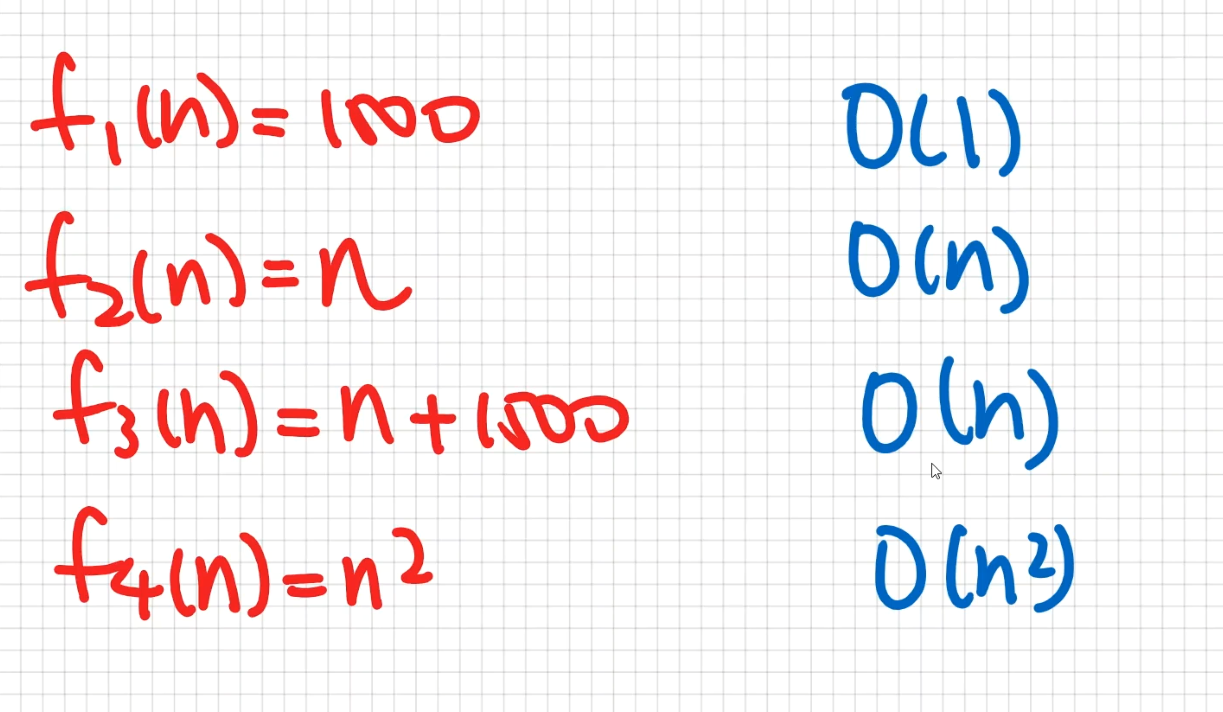 f₁(n) = 1000 O(1)
f₂(n) = n O(n)
f₃(n) = n + 1000 O(n)
f₄(n) = n² O(n²)